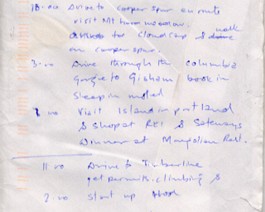 10.00 Drive to cooper spur en route
visit Mt hood meadow.
to cloud cap & walk
on cooper spur.
3.00 Drive through the columbia
Gorge to Gresham book in
Sleep in motel
visit Island in portland
& shop at REI & Safeways
Dinner at Mongolian Rest.
11.00 Drive to Timberline
get permits climbing &
2.00 start up